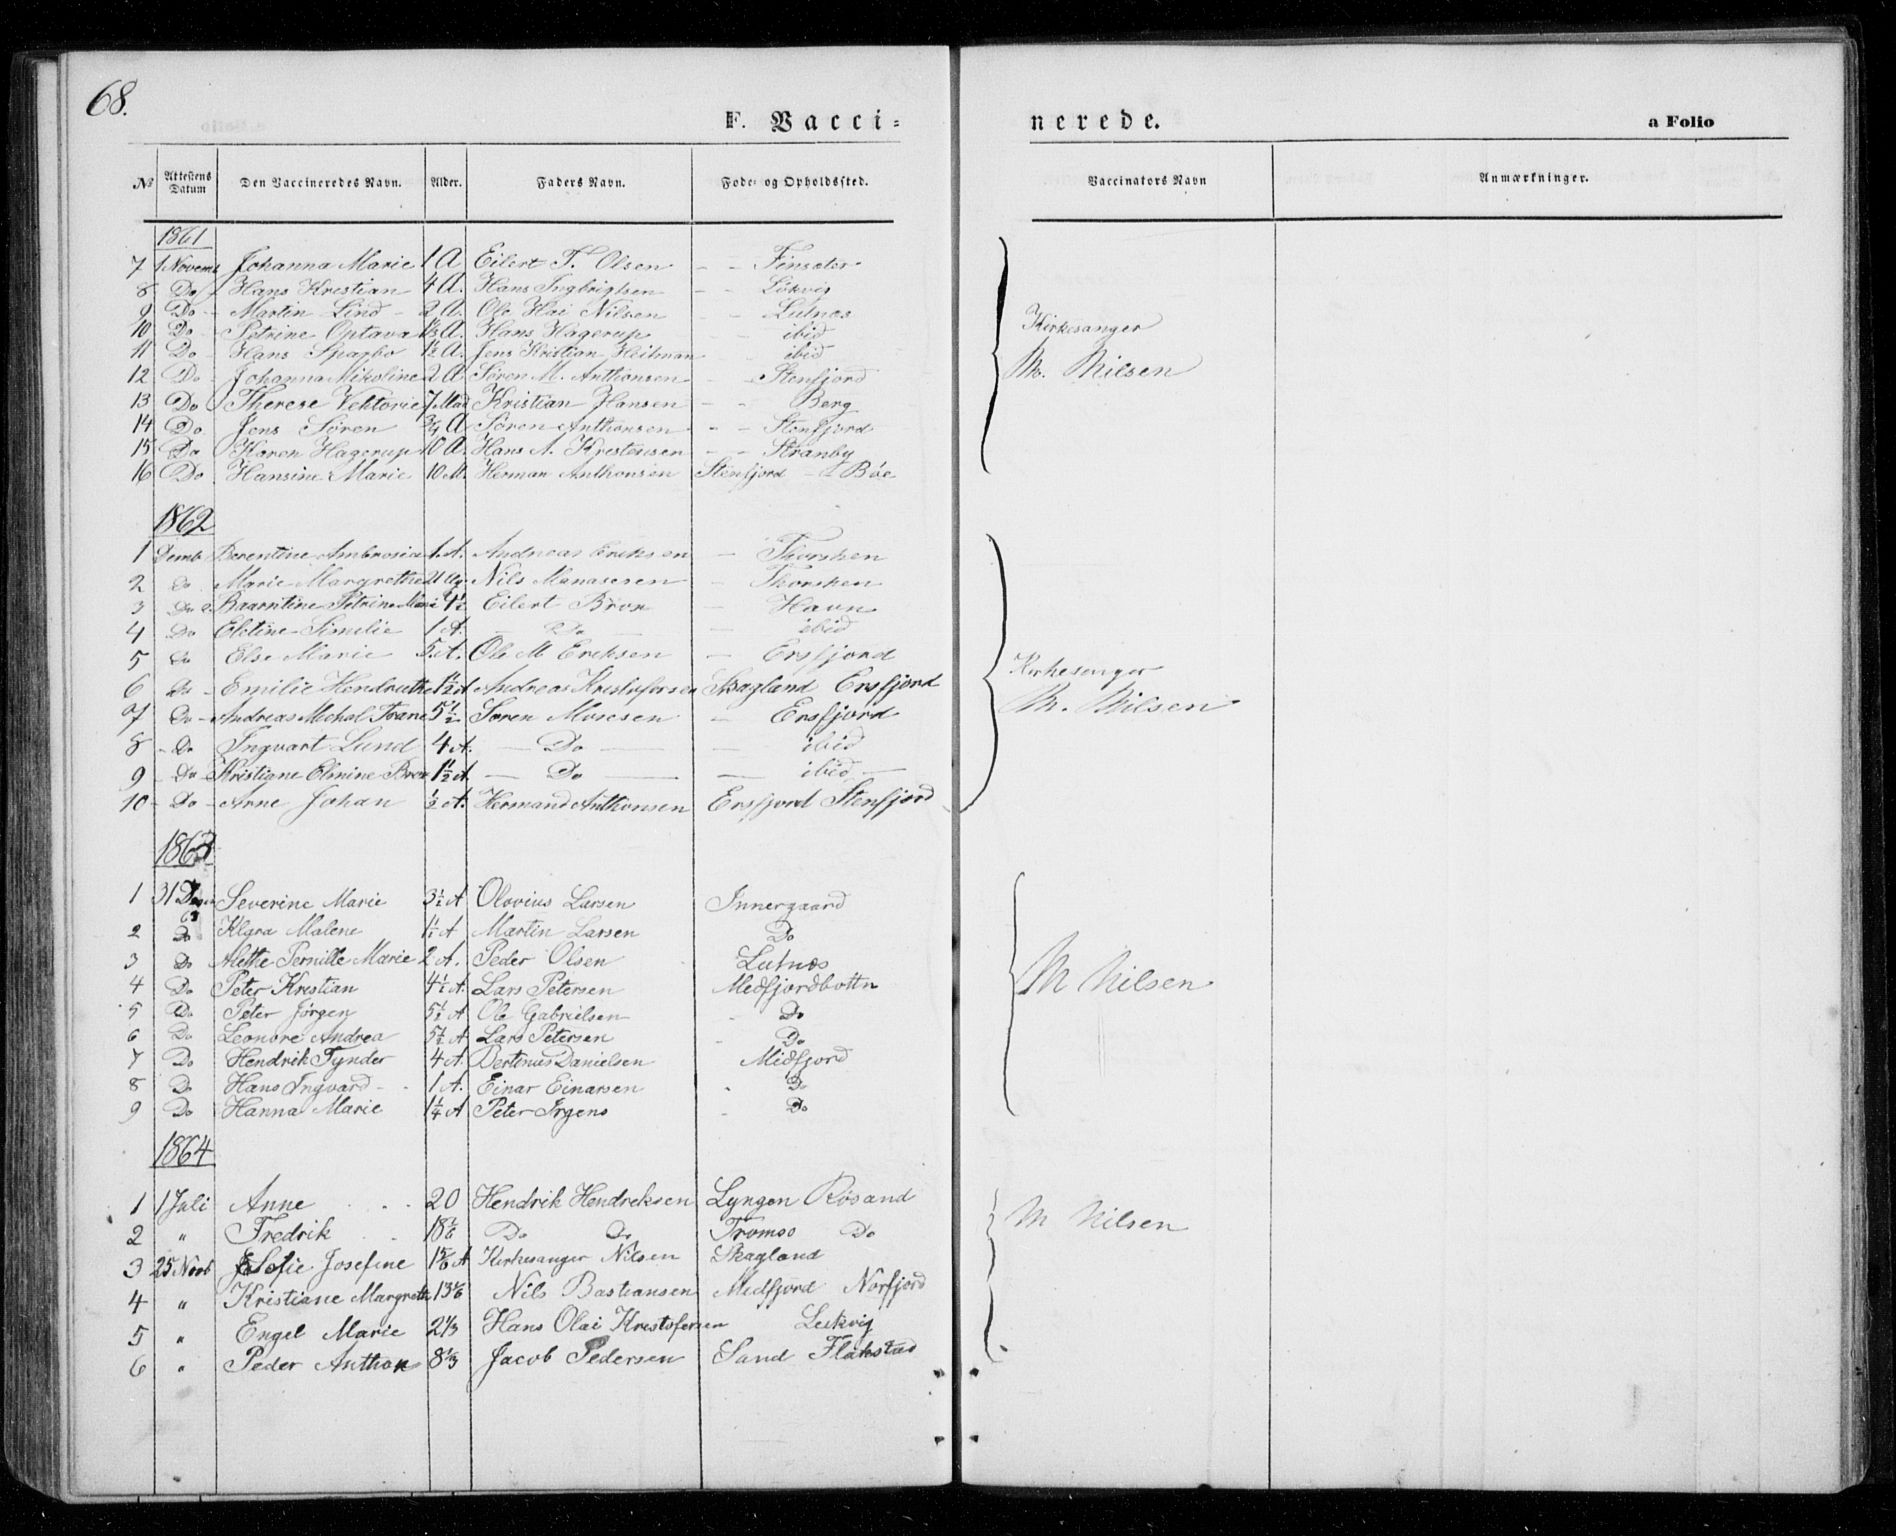 68.
F. Vacci-
nerede.
a Folio
№ Attestens Datum Den Vaccineredes Navn. Alder. Faders Navn. Føde- og Opholdssted.
Vaccinators Navn Anmærkninger.
1861
7 1 Novemb Johanna Marie 1 A Eilert T. Olsen - - Finsæter
8 Do Hans Kristian 4 A. Hans Ingbrigtsen - - Lökvig
9 Do - Martin Lind - 2 A. Ole Hai Nilsen - - Lutnæs
10 Do - Petrine Optava A. Hans Hagerup - ibid
11 Do - Hans Sparbo 1½ A. Jens Kristian Heitman - ibid
12 Do - Johanna Mikoline 2 A Søren M. Anthonsen - - Stenfjord
13 Do Therese Vektorie 7 Mad Kristian Hansen - - Berg
14 Do Jens Søren ¾ A Søren Anthonsen - - Stenfjord
15 Do Karen Hagerup 10 A. Hans A. Krestensen - - Stranby
16 Do Hansine Marie 10 M. Herman Anthonsen Stenfjord - Bøe
Kirkesanger
M. Nilsen
1862
1 Demb Berentine Ambrosia 1. A. Andreas Eriksen - Thorshen
2 Do Marie Margrethe 21 Ug Nils Manasesen - Thorshen
3 Do Baarntine Petrine Marie 4½ Eilert Brox - Havn
4 Do Eletine Similie 1 A. - Do - - ibid
5 Do Else Marie 5. A. Ole M Eriksen - Ersfjord
6 Do - Emilie Hendrutte 1½ A Andreas Kristofersen Skagland Ersfjord
7 Do - Andreas Michal Trane 5½ Søren Mosesen - Ersfjord
8 - Do Ingvart Lund 4 A. - Do - - ibid
9 - Do Kristiane Elmine Brox 1½ A - Do - - ibid -
10 - Do - Arne Johan ½ A. Hermand Anthonsen Ersfjord Stenfjord
Kirkesenger
M. Nilsen
1863
1 31 Severine Marie 3½ A Olovius Larsen Innergaard
2 Do Klara Malene 1½ A Martin Larsen Do
3 Do Alethe Pernille Marie 2 A. Peder Olsen Lutnæs
4 Do Peter Kristian 4½ A. Lars Petersen Medfjordbottn
5 Do Peter Jörgen 5½ A Ole Gabrielsen - Do
6 Do Leonore Andrea 5½ A Lars Petersen - Do
7 Do Hendrik Tynder 4 A. Bertinus Danielsen Midfjord
8 Do Hans Ingvard - - 1 A. Einar Einarsen - Do
9 Do Hanna Marie 1¼ A Peter Irgens - Do
M Nilsen
1864
1 1 Juli Anne 20 Hendrik Hendreksen Lyngen Røsand
2 " Fredrik 18⅙ Do Do Tromsø Do
3 25 Novb Sofie Josefine 1⅚ A Kirkesanger Nilsen Skagland
4 " Kristiane Margrete 13⅙ Nils Bastiansen Medfjord Norfjord
5 " Engel Marie 2⅓ Hans Olai Krestofersen Leikvig
6 " Peder Anthon 8⅓ Jacob Pedersen Sand Flakstad
M Nilsen